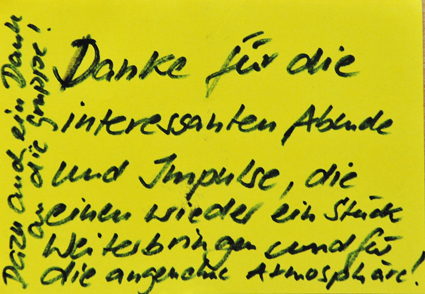 Danke für die
interessanten Abende
und Impulse, die
einen wieder ein Stück
Weiterbringen und für
die angenehme Atmosphäre!
Dazu auch ein Dank
an die Gruppe!